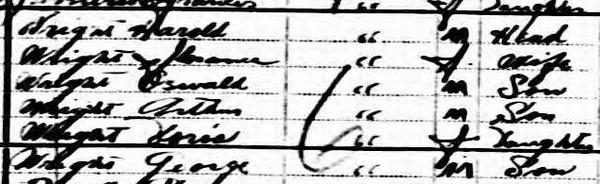 Daughter
Wright Harold " M Head
Wright Eleanor " F Wife
Wright Oswald " M Son
Wright Arthur " M Son
Wright Doris " F Daughter
Wright George " M Son